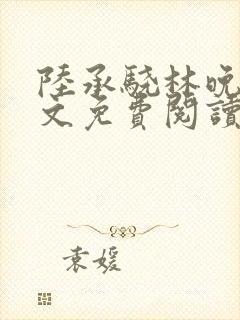 陸承驍林晚
文免費閱讀
袁媛